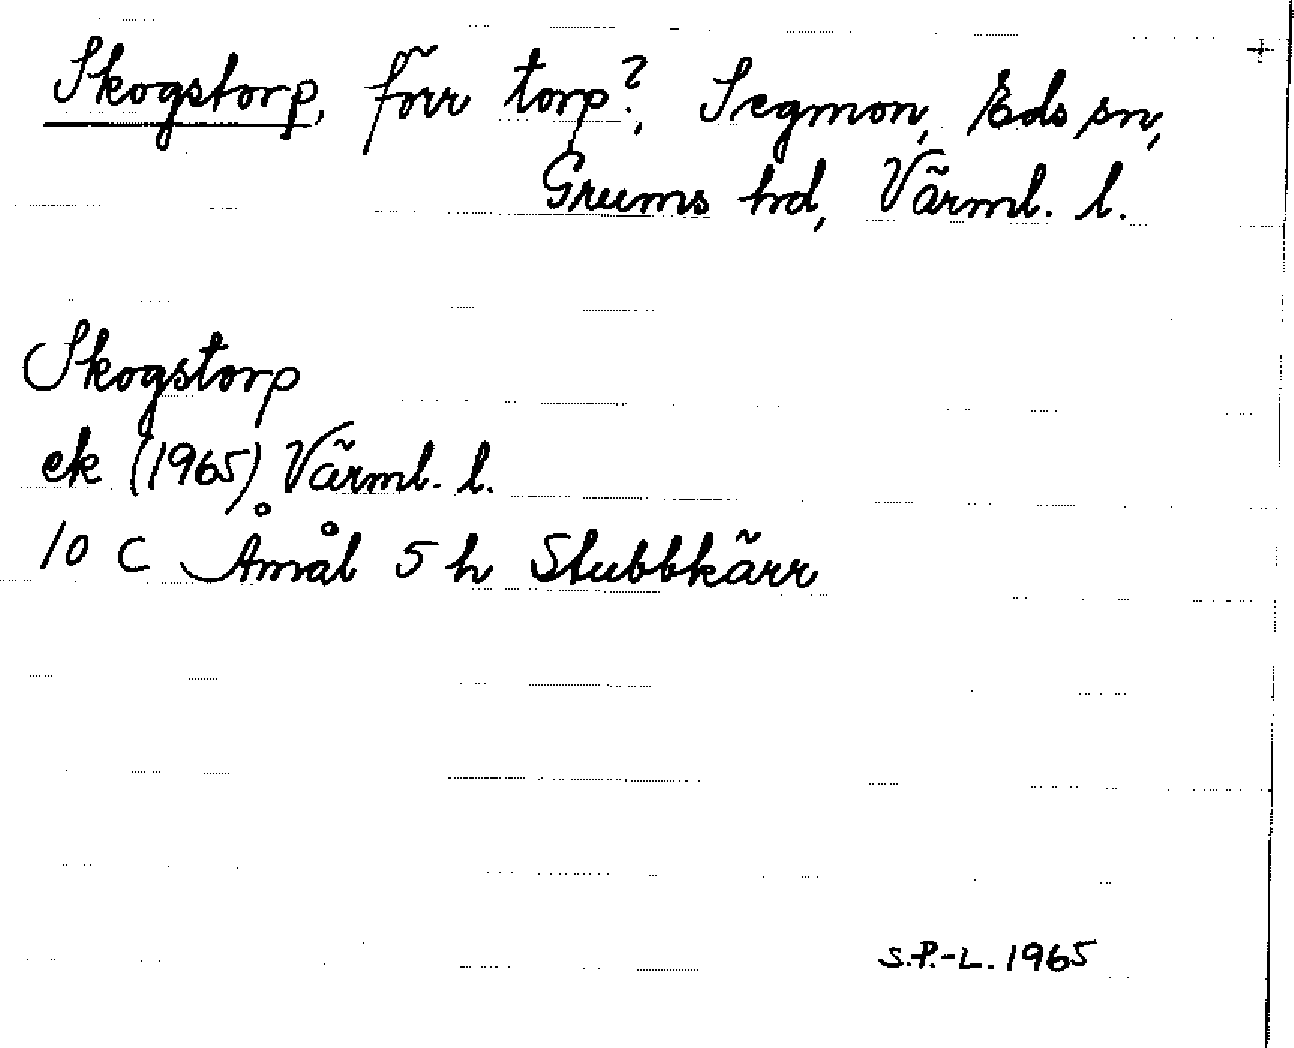 Skogstorp, förr torp?, Segmon, Eds sn,
Grums hd, Värml. l.
Skogstorp
ek (1965) Värml. l.
10 C Åmål 5 h Stubbkärr
S.P.-L. 1965